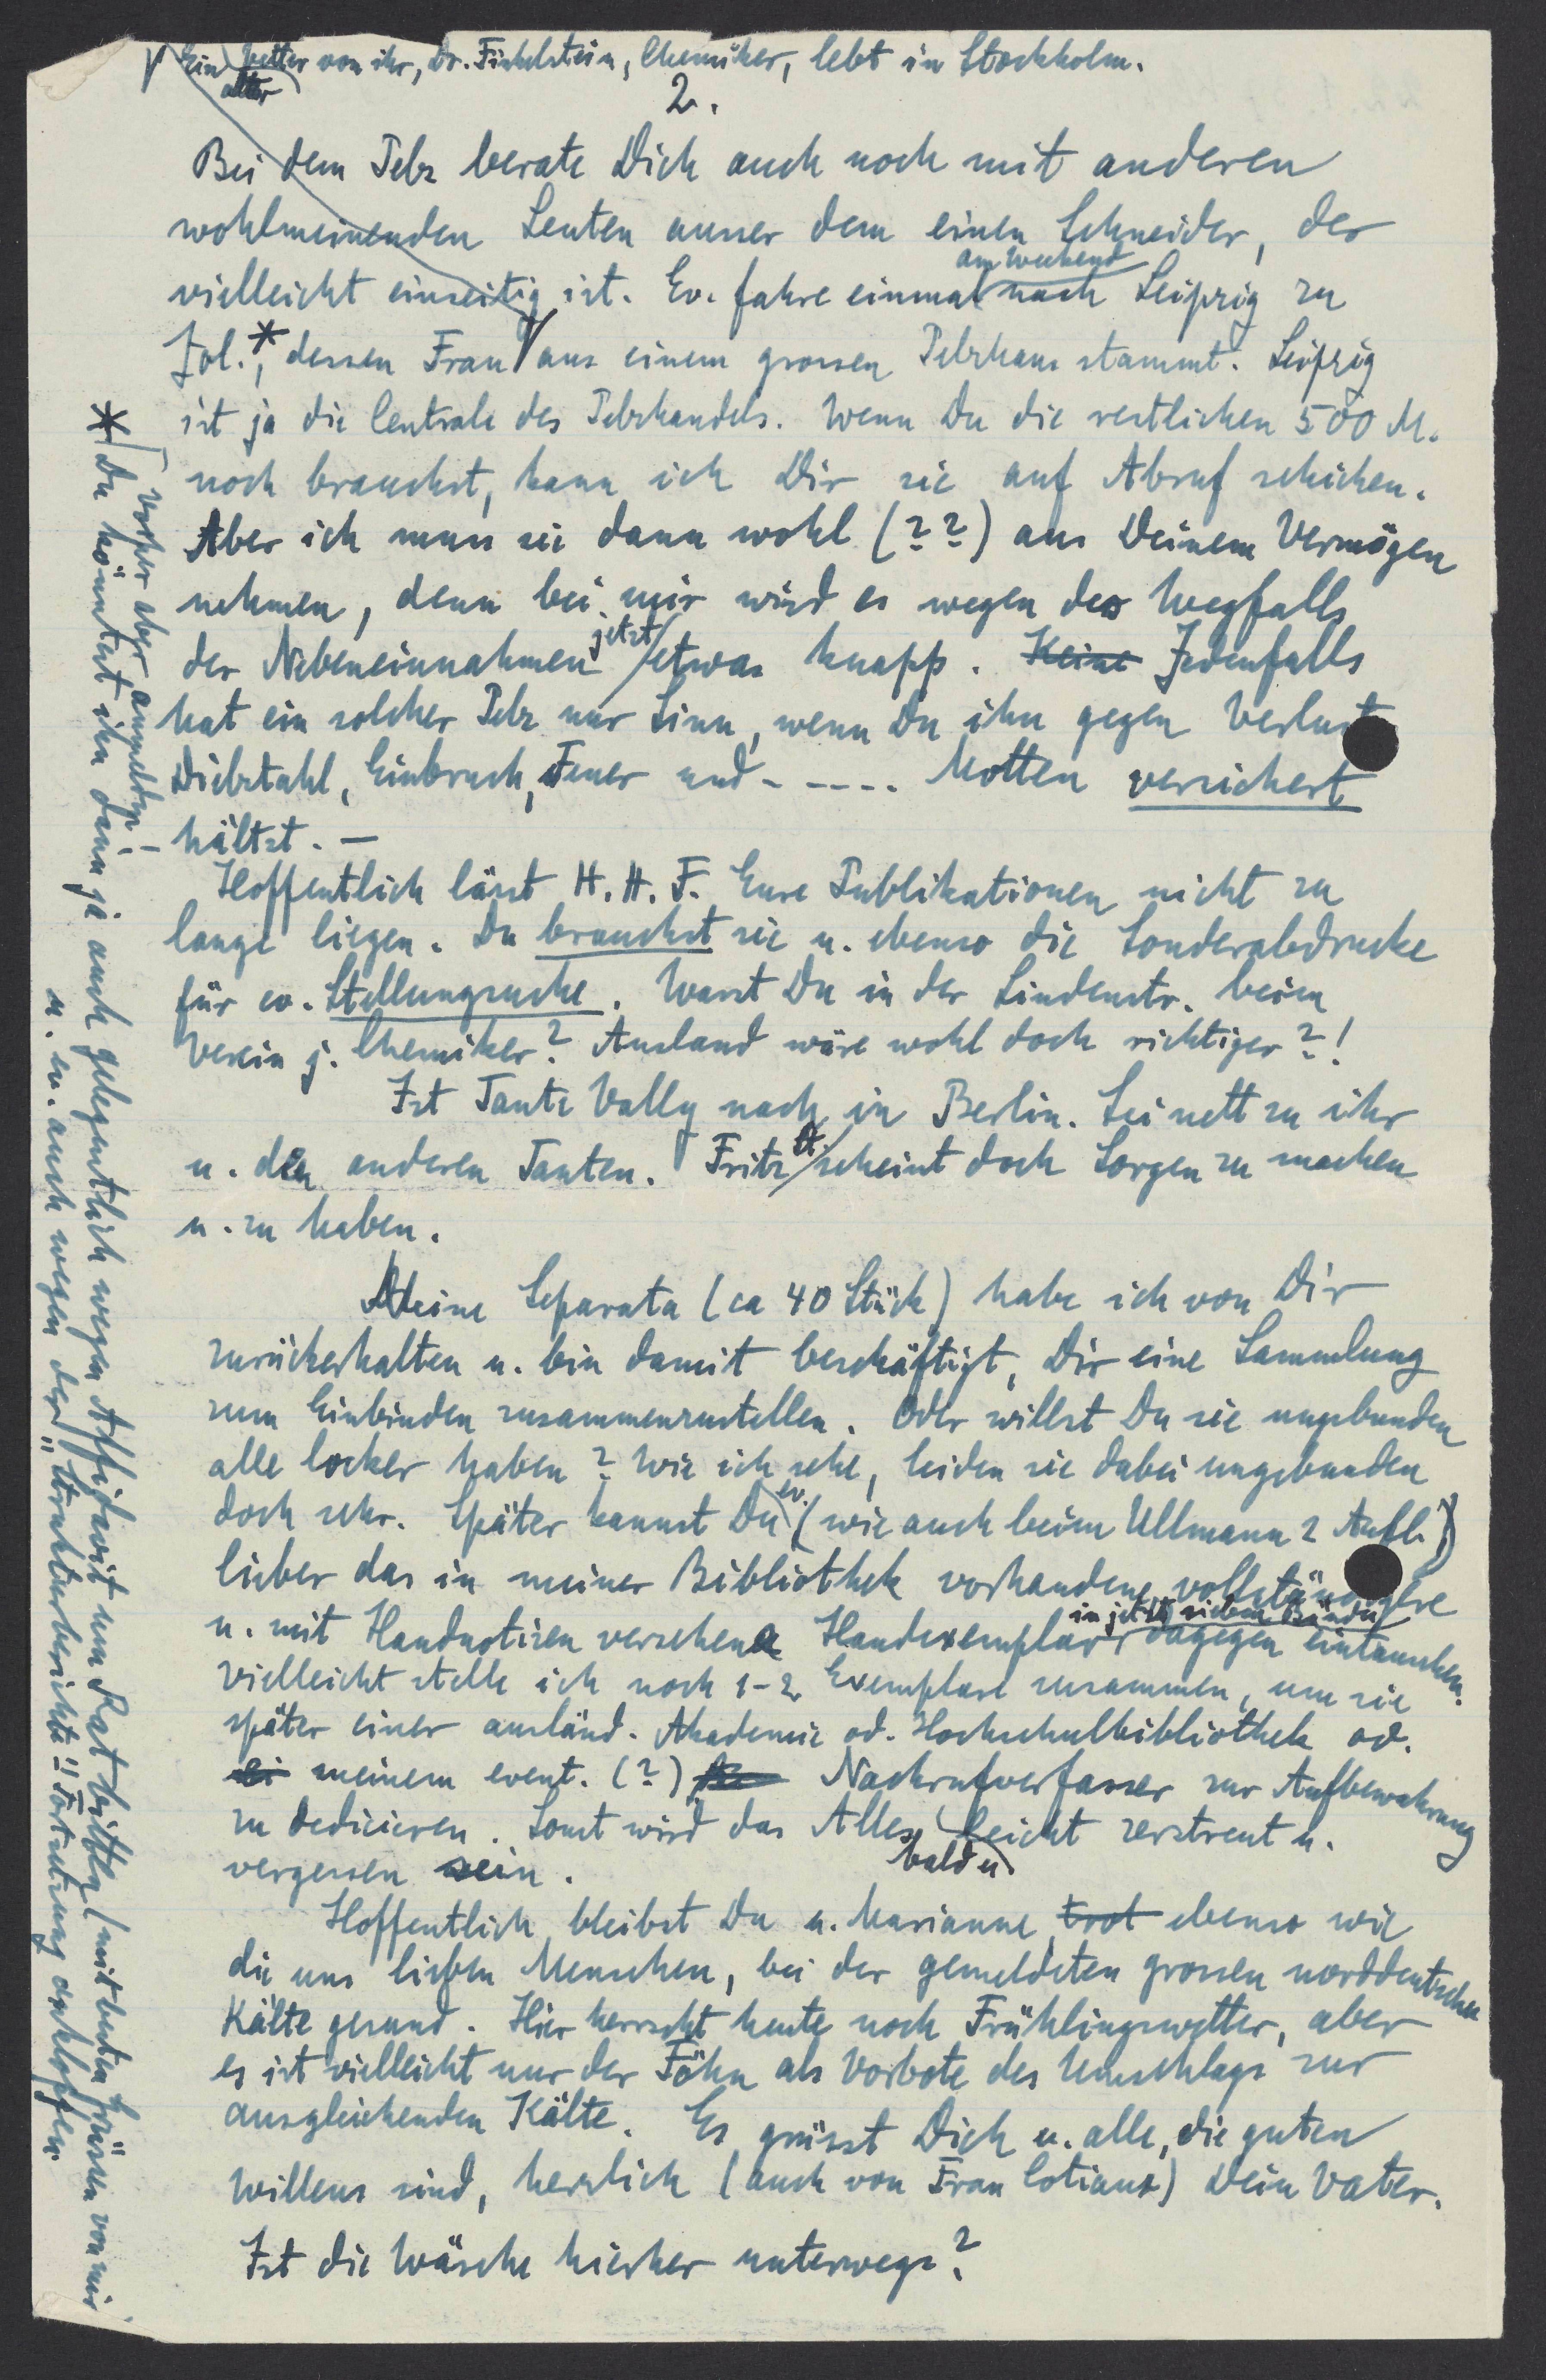 Ein alter Vetter von ihr, Dr. Finkelstein, Chemiker, lebt in Stockholm.
2.
Bei dem Pelz berate Dich auch noch mit anderen
wohlmeinenden Leuten ausser dem einen Schneider, der
vielleicht einseitig ist. Ev. fahre einmal am Weekend nach Leipzig zu
Jol.*, dessen Frau aus einem grossen Pelzhaus stammt. Leipzig
ist ja die Centrale des Pelzhandels. Wenn Du die restlichen 500 M.
noch brauchst, kann ich Dir sie auf Abruf schicken.
Aber ich muss sie dann wohl (??) aus Deinem Vermögen
nehmen, denn bei mir wird es wegen des Wegfalls
der Nebeneinnahmen jetzt etwas knapp. Keine Jedenfalls
hat ein solcher Pelz nur Sinn, wenn Du ihn gegen Verlust
Diebstahl, Einbruch, Feuer und - ---- Motten versichert
hältst. —
Hoffentlich lässt H. H. F. Eure Publikationen nicht zu
lange liegen. Du brauchst sie u. ebenso die Sonderabdrucke
für ev. Stellungsuche. Warst Du in der Lindenstr. beim
Verein j. Chemiker? Ausland wäre wohl doch richtiger?!
Ist Tante Vally noch in Berlin. Sei nett zu ihr
u. den anderen Tanten. Fritz A. scheint doch Sorgen zu machen
u. zu haben.
Meine Separata (ca 40 Stück) habe ich von Dir
zurückerhalten u. bin damit beschäftigt, Dir eine Sammlung
zum Einbinden zusammenzustellen. Oder willst Du sie ungebunden
alle locker haben? Wie ich sehe, leiden sie dabei ungebunden
doch sehr. Später kannst Du ev. (wie auch beim Ullmann 2 Aufl.)
lieber das in meiner Bibliothek vorhandene, vollständigere
u. mit Handnotizen versehene Handexemplar in jetzt sieben Bänden dagegen eintauschen.
Vielleicht stelle ich noch 1-2 Exemplare zusammen, um sie
später einer ausländ. Akademie od. Hochschulbibliothek od.
ei meinem event. (?) Nachrufverfasser zur Aufbewahrung
zu dedicieren. Sonst wird das Alles bald u. leicht zerstreut u.
vergessen sein.
Hoffentlich bleibst Du u. Marianne trot ebenso wie
die uns lieben Menschen, bei der gemeldeten grossen norddeutschen
Kälte gesund. Hier herrscht heute noch Frühlingswetter, aber
es ist vielleicht nur der Föhn als Vorbote des Umschlags zur
ausgleichenden Kälte. Es grüsst Dich u. alle, die guten
Willens sind, herzlich (auch von Frau Cotiaux) Dein Vater.
Ist die Wäsche hierher unterwegs?
* Du könntest ihn dann ja auch gelegentlich wegen Affidavit um Rat bitten (mit besten Grüssen von mir
u. ev. auch wegen der "Strukturberichte"-Fortsetzung anklopfen.
vorher aber anmelden! -